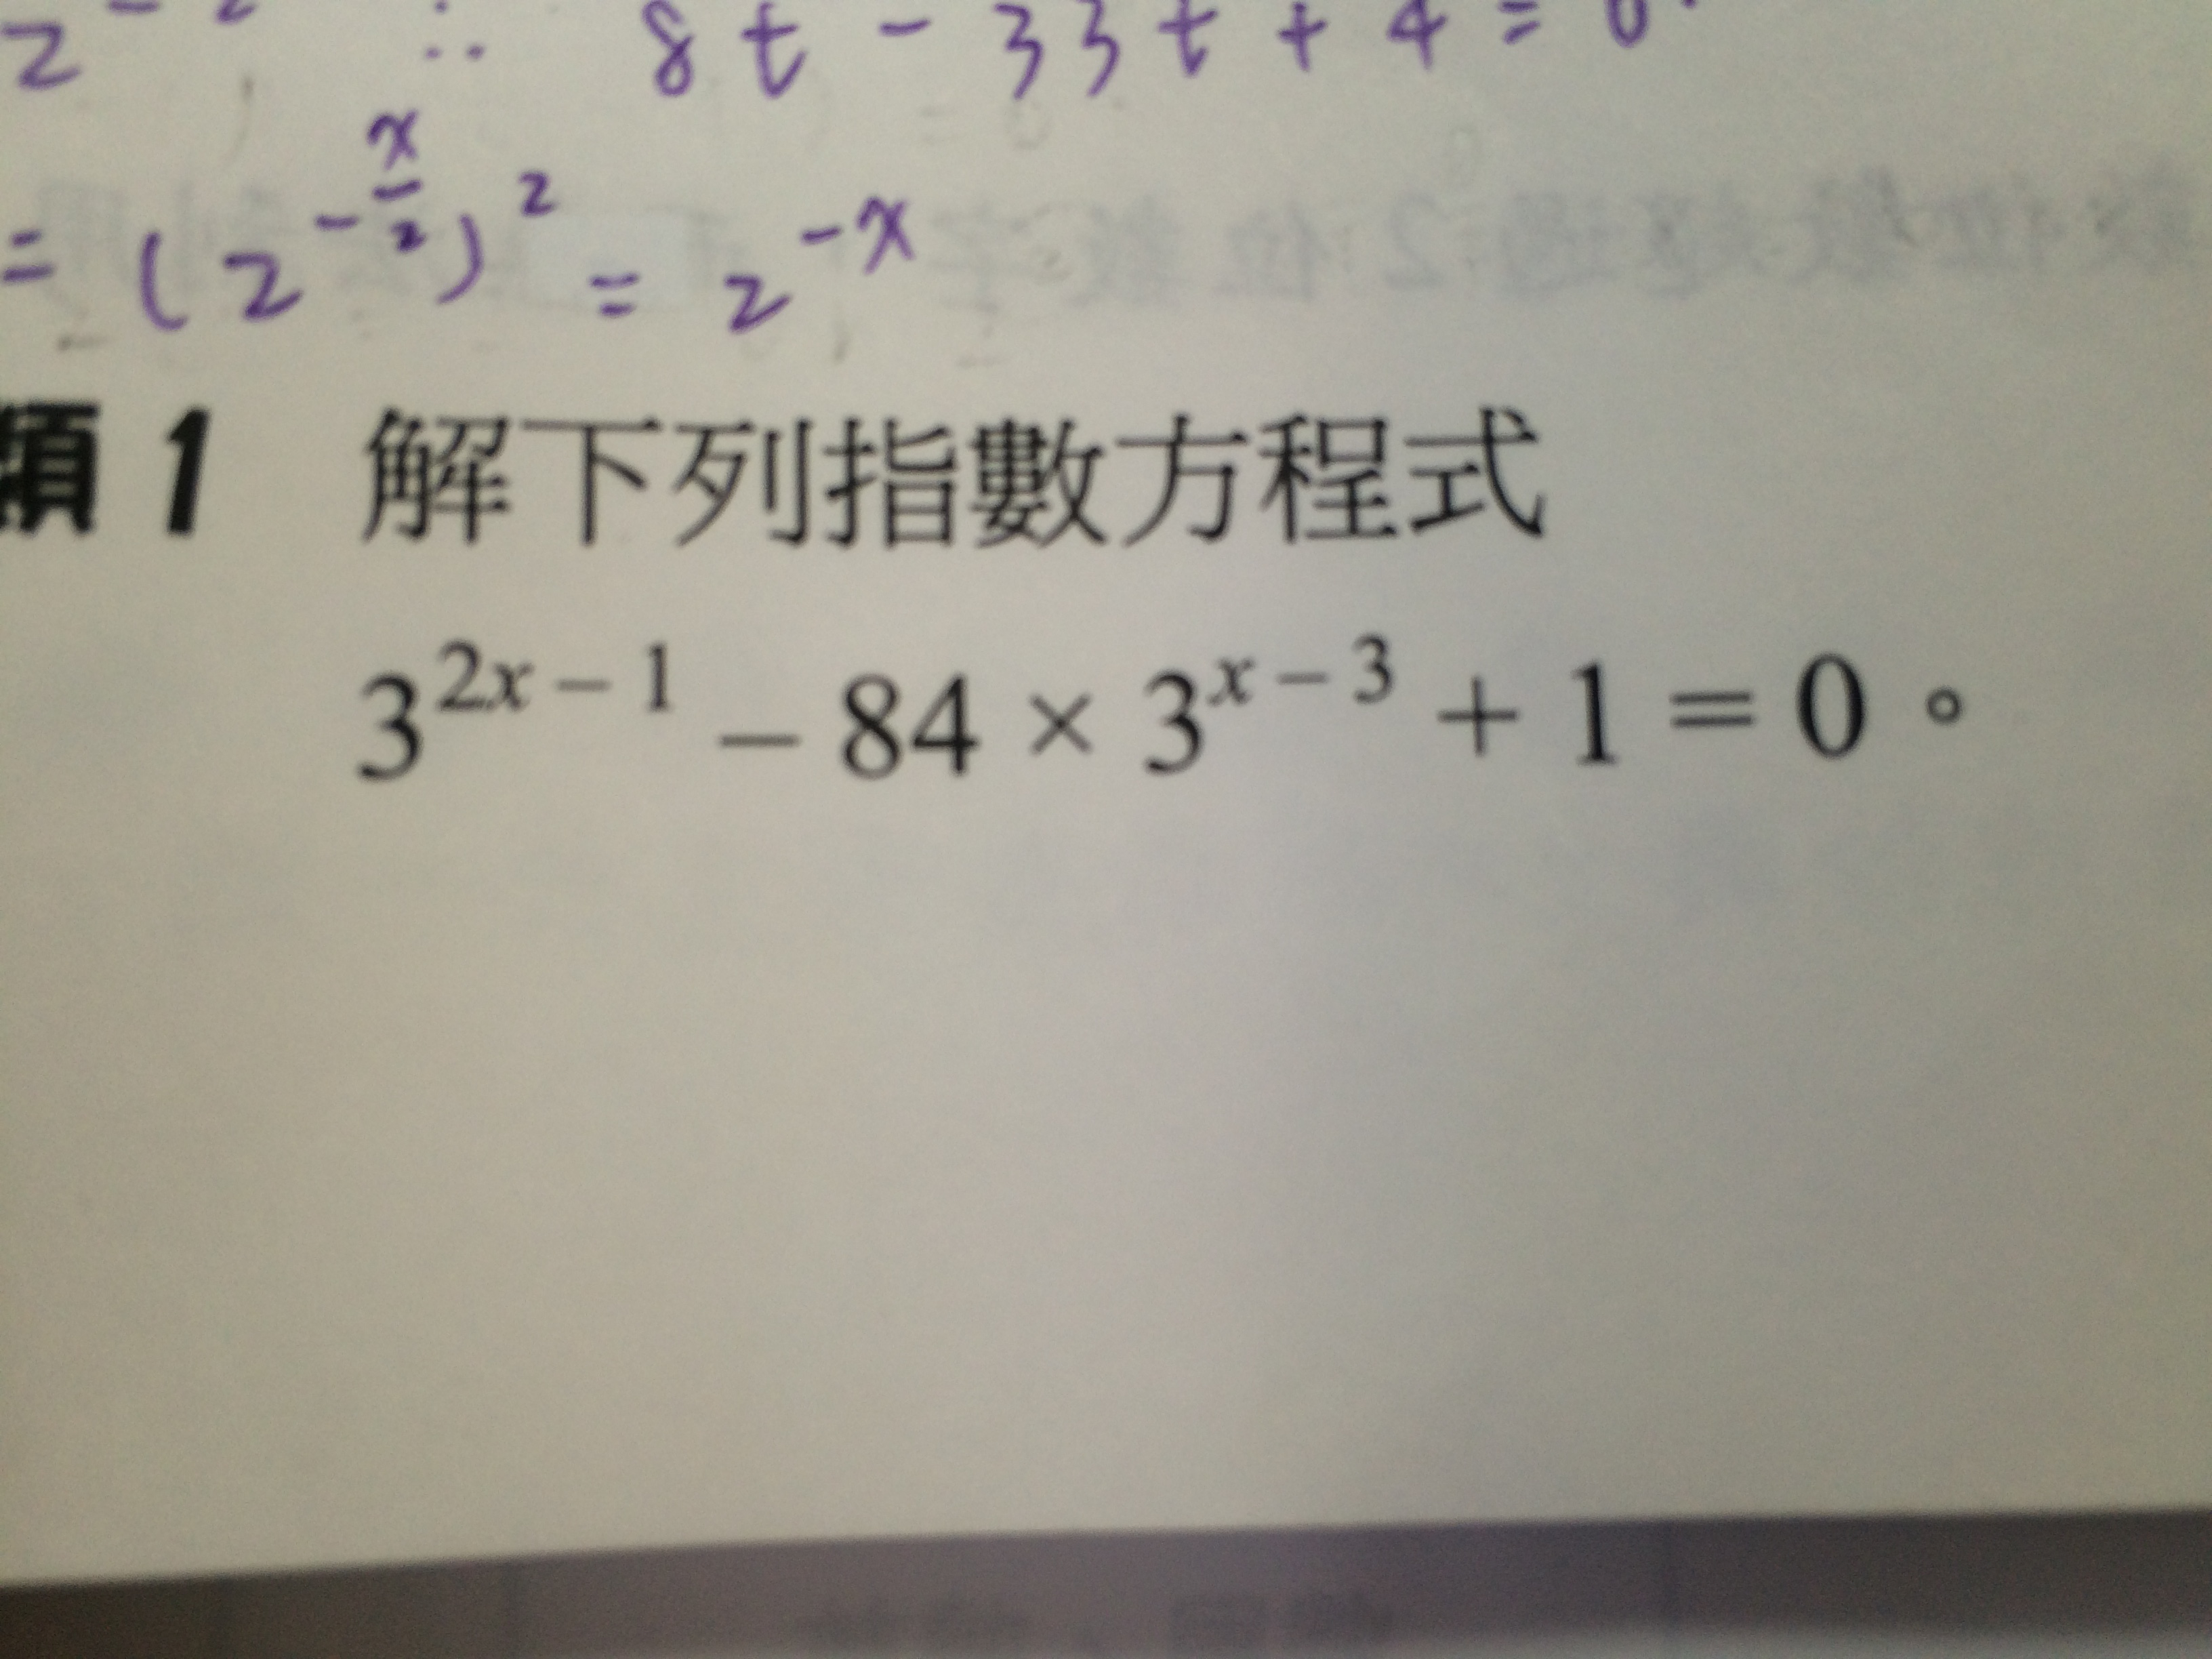 2⁻² ∴ 8t - 33t + 4 = 0
= (2^{-\frac{x}{2}})² = 2^{-x}
類 1 解下列指數方程式
3^{2x-1} - 84 × 3^{x-3} + 1 = 0。